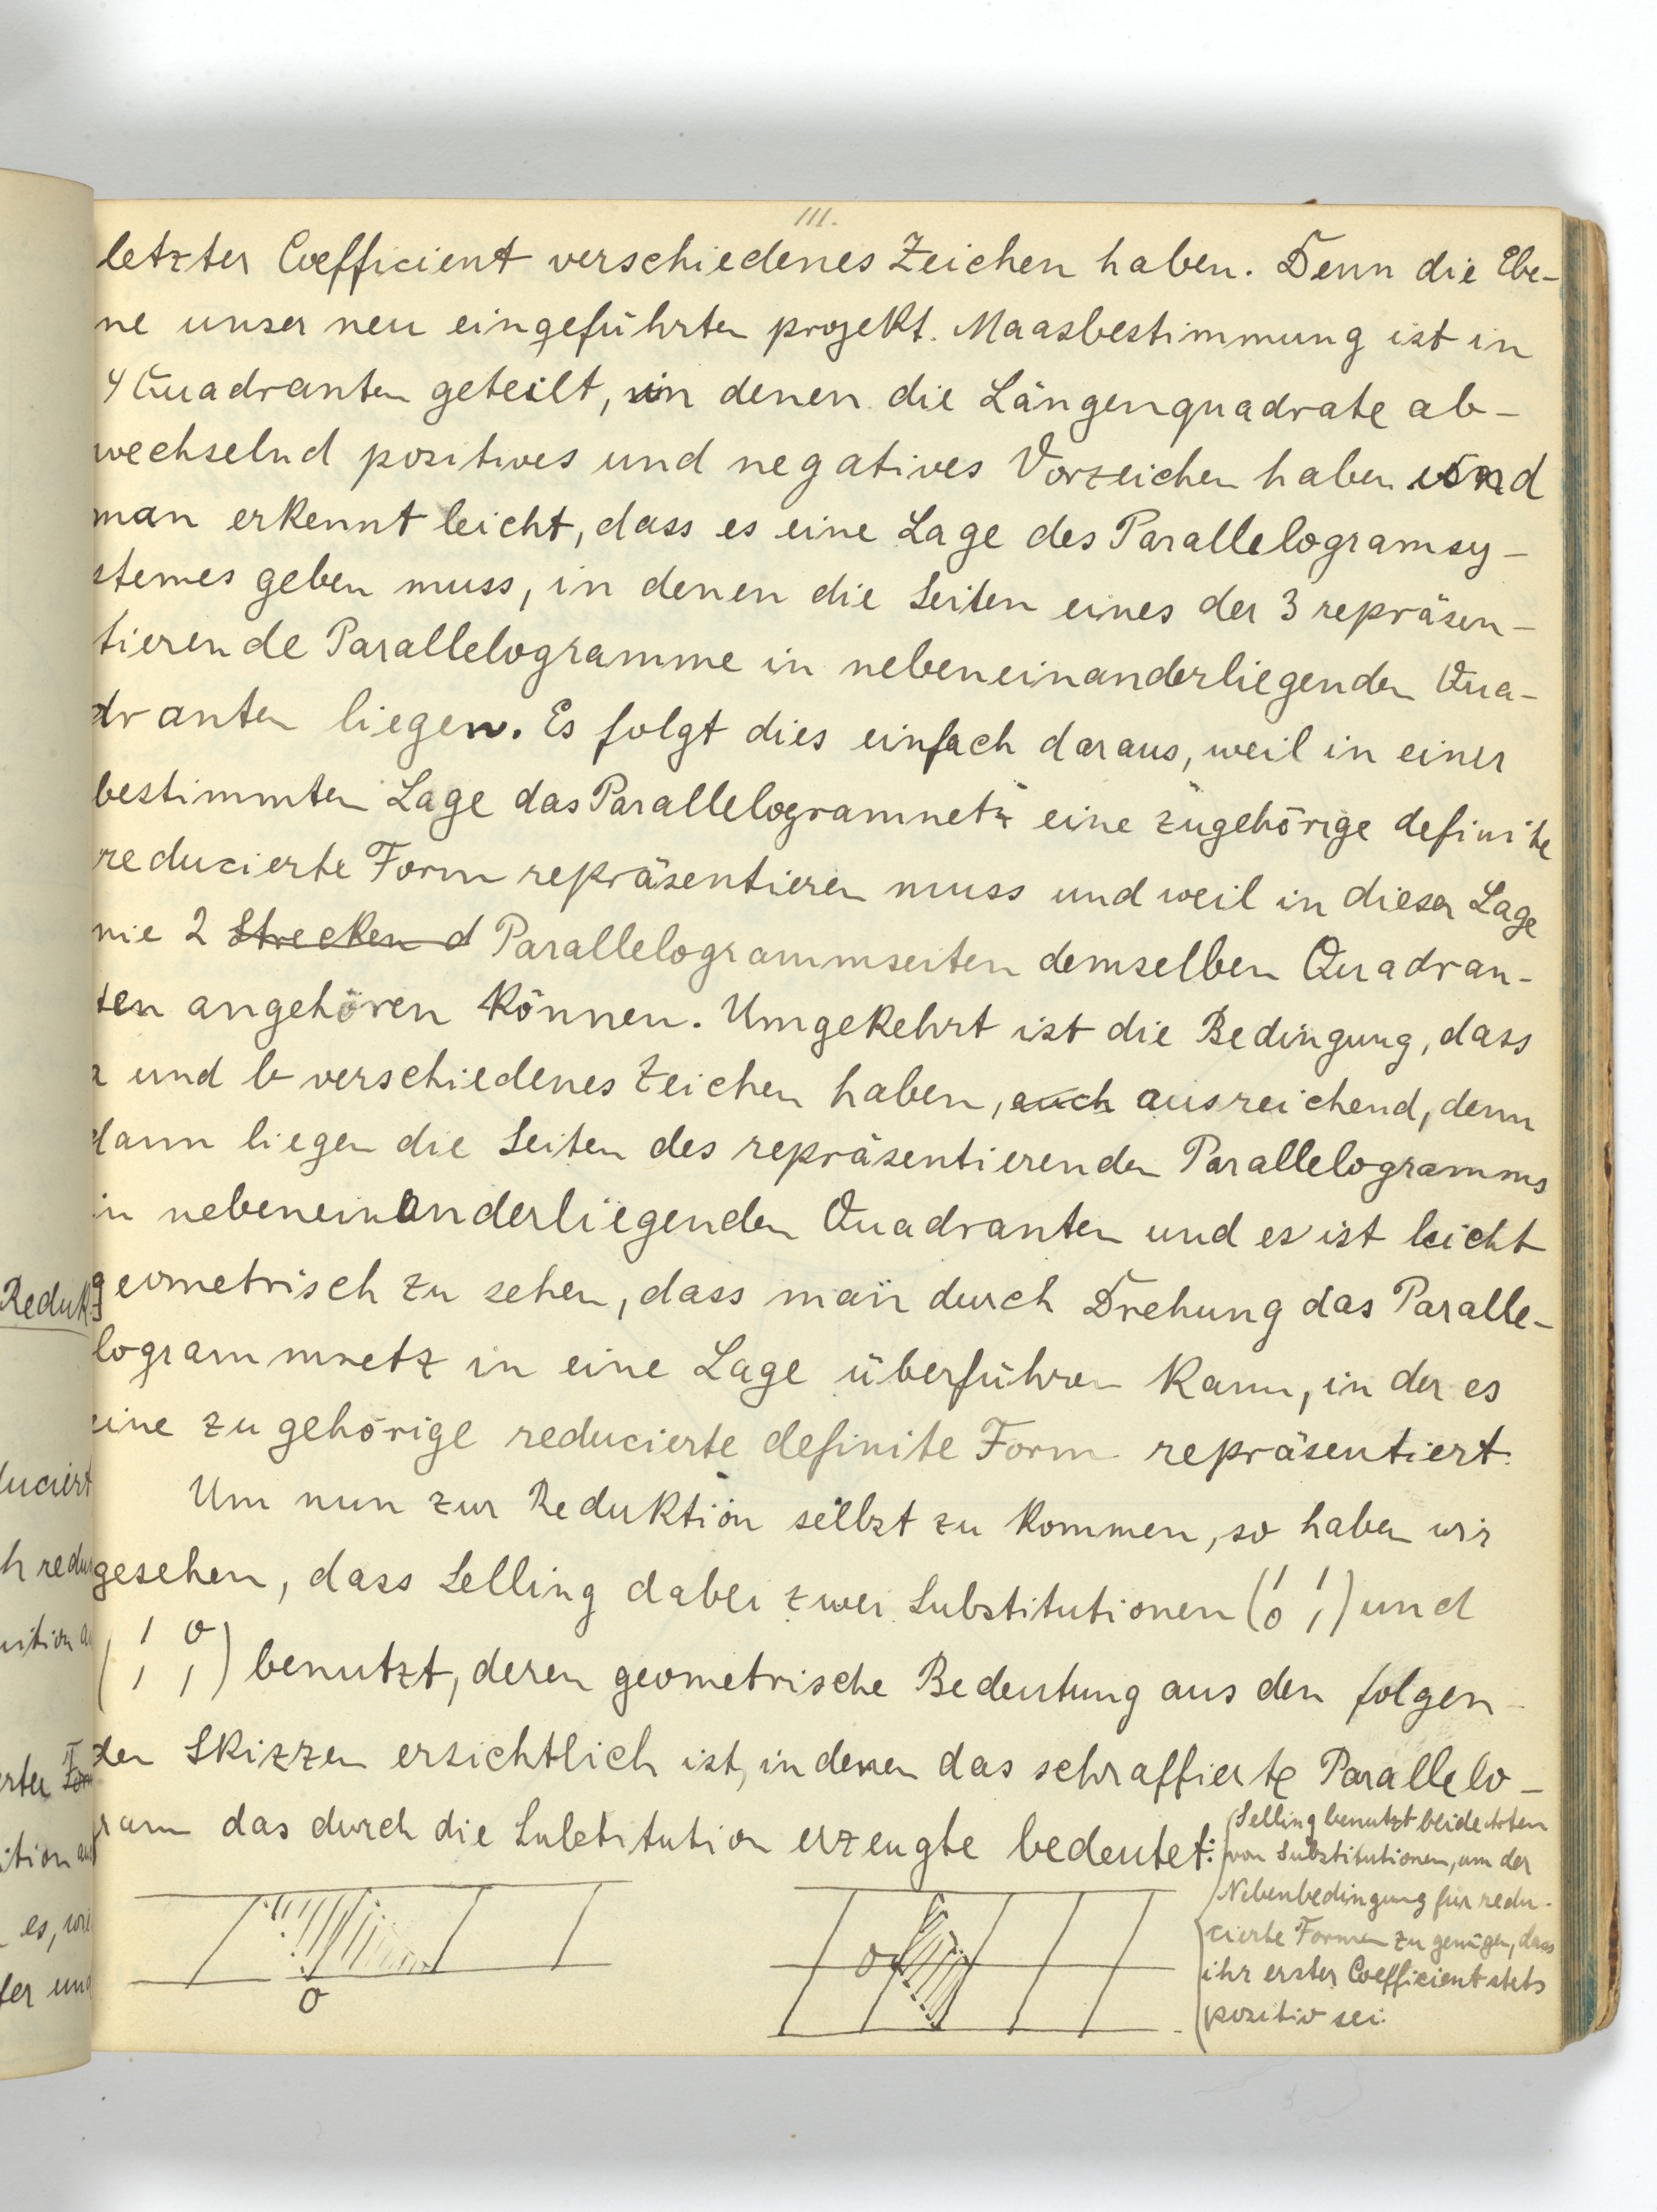 111.
letzter Coefficient verschiedenes Zeichen haben. Denn die Ebe-
ne unser neu eingeführten projekt. Maasbestimmung ist in
4 Quadranten geteilt, in denen die Längenquadrate ab-
wechselnd positives und negatives Vorzeichen haben und
man erkennt leicht, dass es eine Lage des Parallelogramsy-
stemes geben muss, in denen die Seiten eines der 3 repräsen-
tierende Parallelogramme in nebeneinanderliegenden Qua-
dranten liegen. Es folgt dies einfach daraus, weil in einer
bestimmten Lage das Parallelogramnetz eine zugehörige definite
reducierte Form repräsentieren muss und weil in dieser Lage
nie 2 Strecken d Parallelogrammseiten demselben Quadran-
ten angehören können. Umgekehrt ist die Bedingung, dass
a und b verschiedenes Zeichen haben, auch ausreichend, denn
dann liegen die Seiten des repräsentierenden Parallelogramms
in nebeneinanderliegenden Quadranten und es ist leicht
geometrisch zu sehen, dass man durch Drehung das Paralle-
logrammnetz in eine Lage überführen kann, in der es
eine zugehörige reducierte definite Form repräsentiert.
Um nun zur Reduktion selbst zu kommen, so haben wir
gesehen, dass Selling dabei zwei Substitutionen (1 1
0 1) und
(1 0
1 1) benutzt, deren geometrische Bedeutung aus den folgen-
den Skizzen ersichtlich ist, in denen das schraffierte Parallelo-
gram das durch die Substitution erzeugte bedeutet:
Selling benutzt beide Arten
von Substitutionen, um der
Nebenbedingung für redu-
cierte Formen zu genügen, dass
ihr erster Coefficient stets
positiv sei.
O
O
Reduk
duciert
h redu
ution a
erter For
ition au
es, wie
fer und